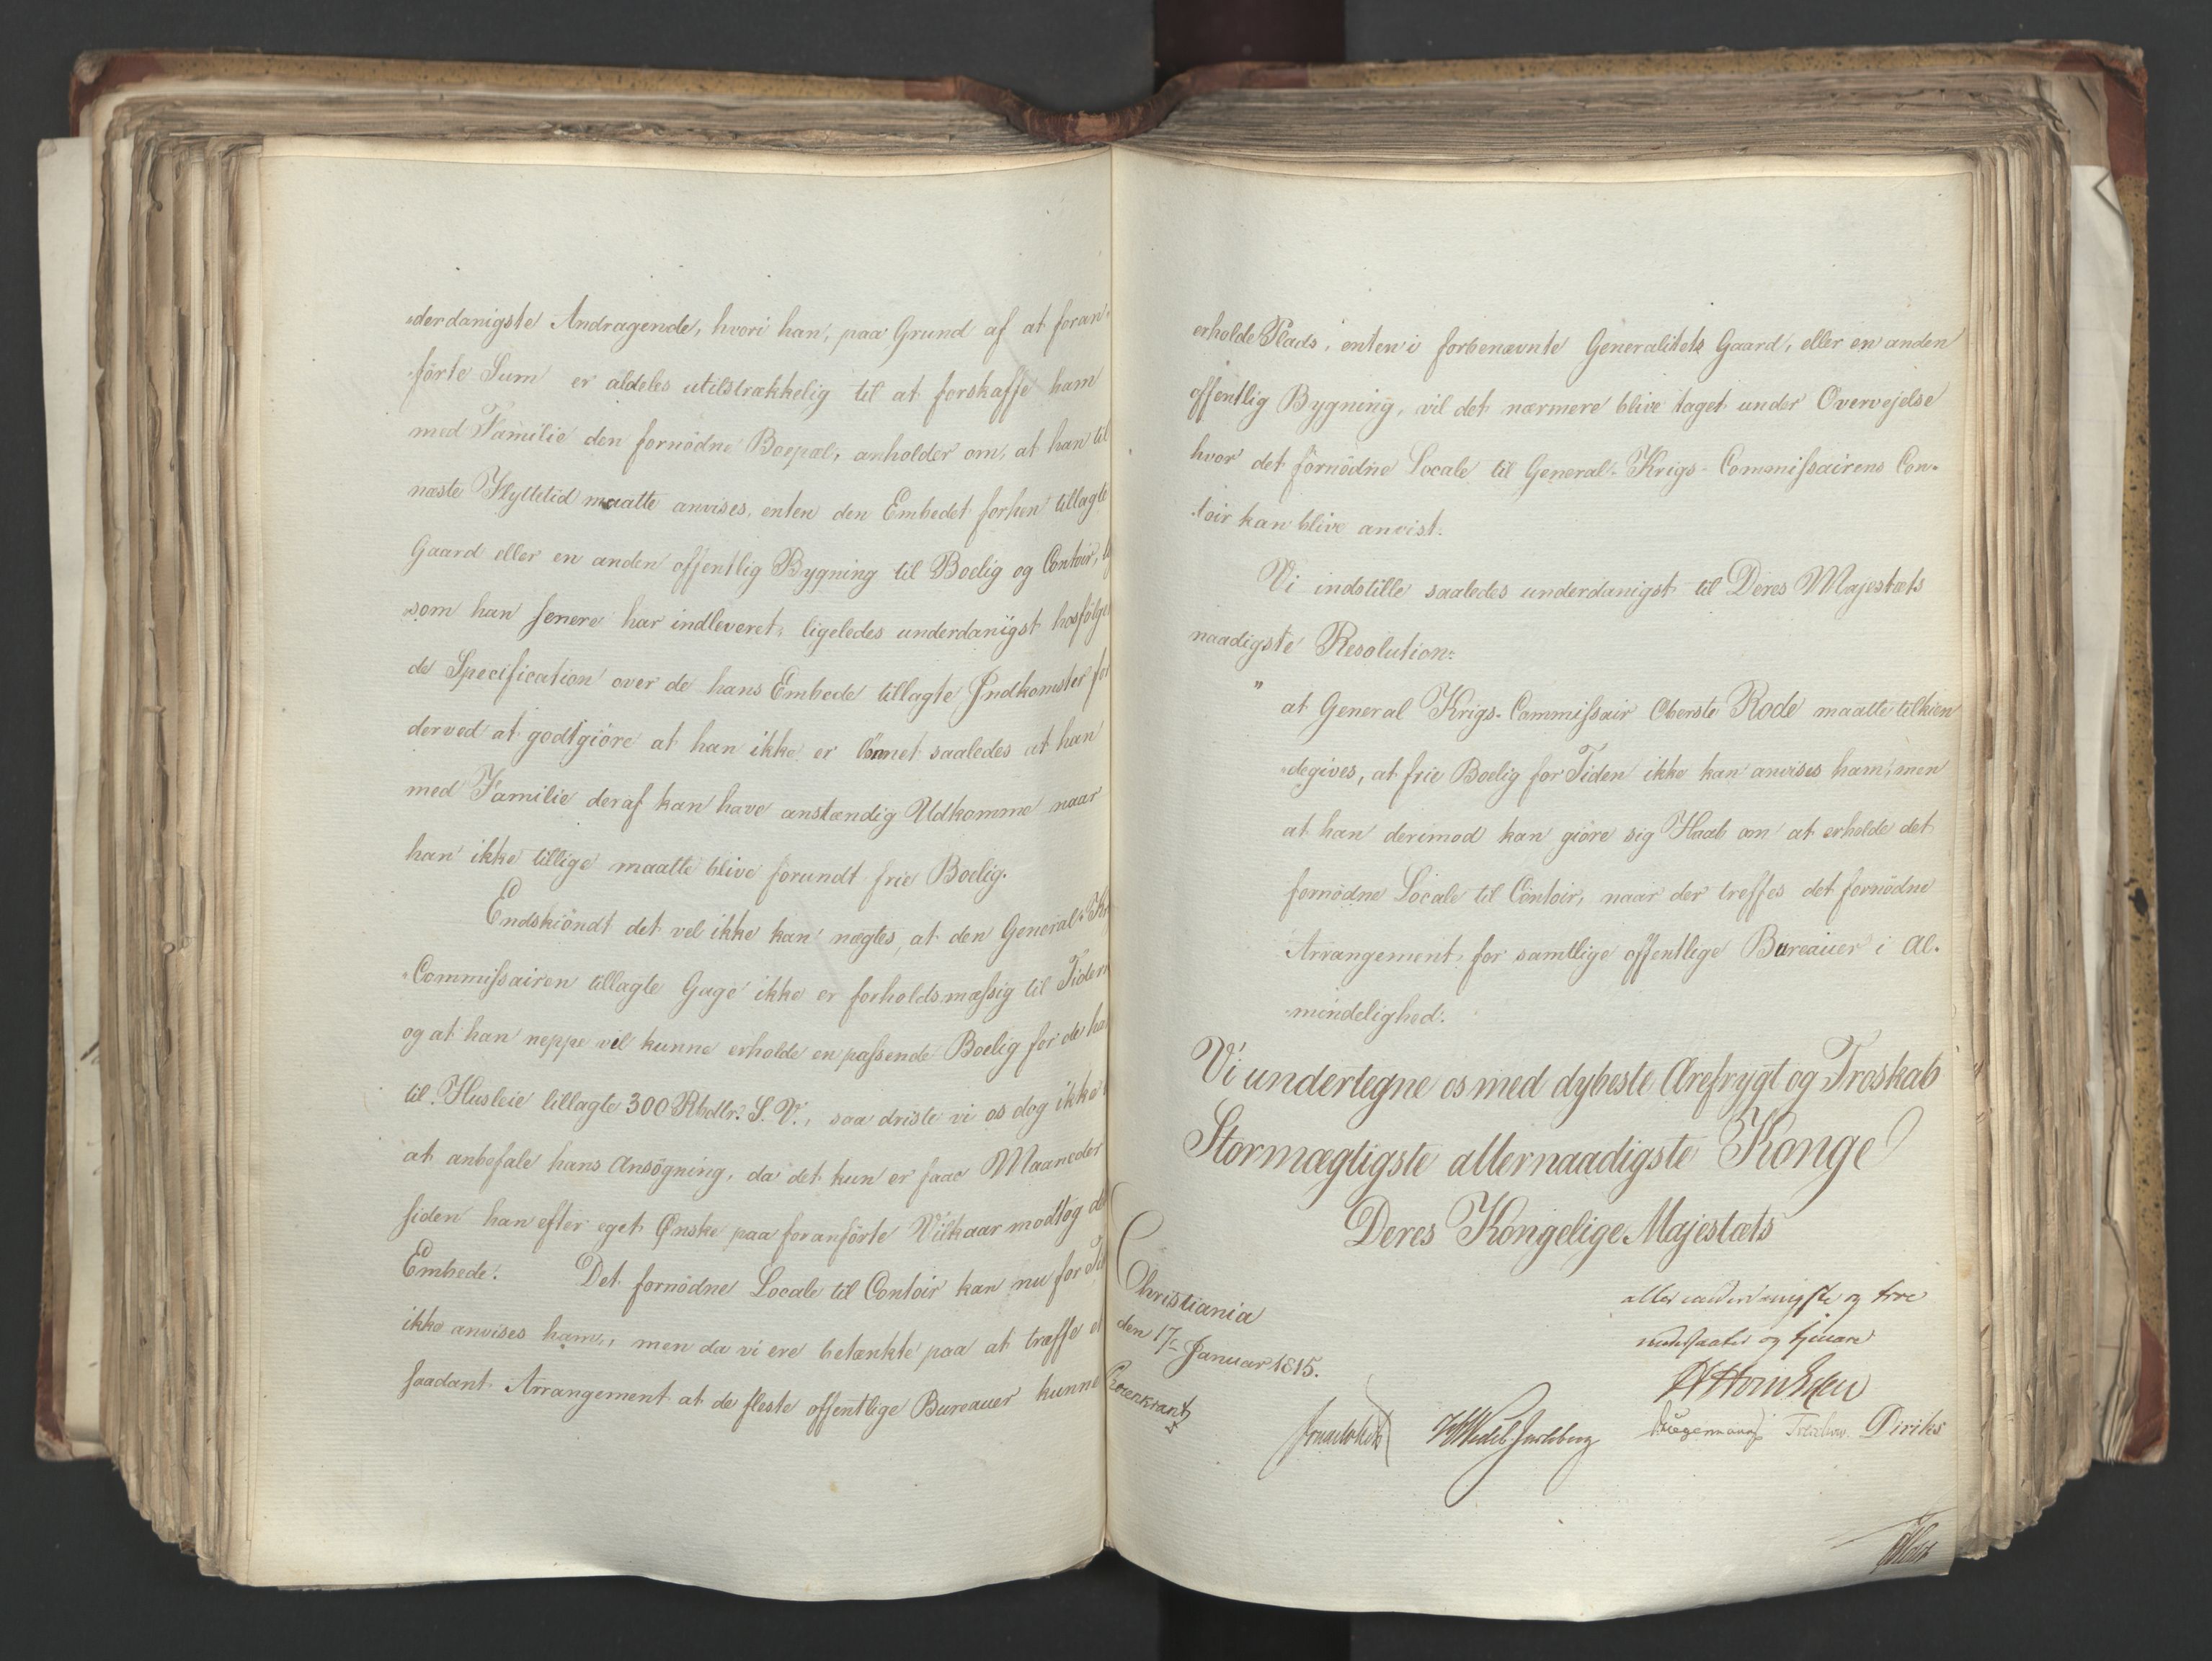 "derdanigste Andragende, hvori han, paa Grund af at foran-
"förte Sum er aldeles utilstrækkelig til at forskaffe ham
med Familie den fornödne Boepæl, anholder om, at han til
næste Flyttetid maatte anvises, enten den Embedet forhen tillagte
Gaard eller en anden offentlig Bygning til Boelig og Contoir,
"som han senere har indleveret, ligeledes underdanigst hosfölgen
de Specification over de hans Embede tillagte Indkomster for
derved at godtgiöre at han ikke er lönnet saaledes at han
med Familie deraf kan have anstændig Udkomme naar
han ikke tillige maatte blive forundt frie Boelig.
Endskiöndt det vel ikke kan nægtes, at den General-Kr
"Commissairen tillagte Gage ikke er forholdsmæssig til Tiden
og at han neppe vil kunne erholde en passende Boelig for de ha
til Husleie tillagte 300 Rbdlr. S. V., saa driste vi os dog ikke
at anbefale hans Ansögning, da det kun er faae Maaneder
siden han efter eget Ønske paa foranförte Vilkaar modtog de
Embede. Det fornödne Locale til Contoir kan nu for Ti
ikke anvises ham, men da vi ere betænkte paa at træffe et
saadant Arrangement at de fleste offentlige Bureauer kunne
erholde Plads, enten i forbenævnte Generalitets Gaard, eller en anden
offentlig Bygning, vil det nærmere blive taget under Overvejelse
hvor det fornödne Locale til General-Krigs-Commissairens Con-
"toir kan blive anvist.
Vi indstille saaledes underdanigst til Deres Majestæts
naadigste Resolution:
" at General Krigs-Commissair Oberste Rode maatte tilkien
"degives, at frie Boelig for Tiden ikke kan anvises ham, men
at han derimod kan giöre sig Haab om at erholde det
fornödne Locale til Contoir, naar der treffes det fornödne
Arrangement for samtlige offentlige Bureauer i Al-
"mindelighed.
Vi undertegne os med dybeste Ærefrygt og Troskab
Stormægtigste allernaadigste Konge
Deres Kongelige Majestæts
allerunderdanigste og troe
undersaatter og tjenere
Christiania
den 17de Januar 1815.
Rosenkrantz
Wedel Jarlsberg Krogemann Treschow Diriks